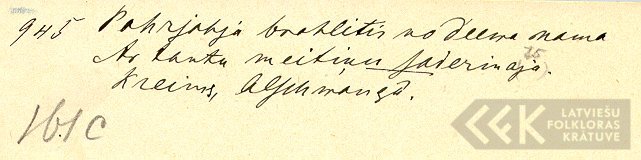 945 Pahrjahja brahlitis no deewa nama
Ar tautu meitiņu saderinajs.
Kreims, Alschwangā.
161c
LATVIEŠU
FOLKLORAS
KRĀTUVE